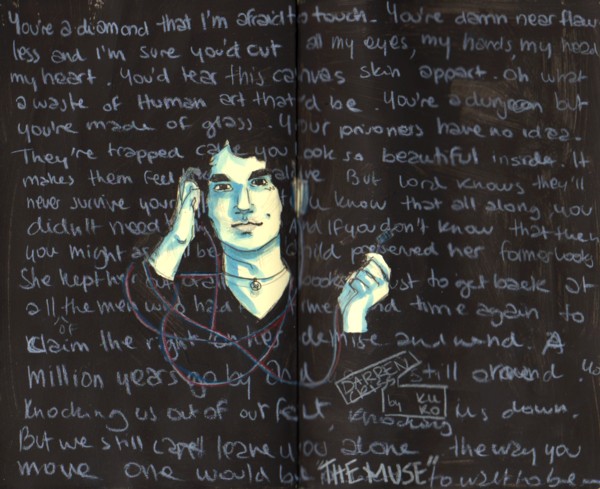 You're a diamond that I'm afraid to touch. You're damn near flaw
less and I'm sure you'd cut all my eyes, my hands, my head
my heart. You'd tear this canvas skin appart. Oh what
a waste of Human art that'd be. You're a dungeon but
you're made of glass. Your prisoners have no idea.
They're trapped cause you look so beautiful inside. It
makes them feel alive But lord knows they'll
never survive your You know that all along you
didn't need and if you don't know that then
you might as be child preserved her former looks
She kept her just to get back at
all the men had time and time again to
OF
claim the right demise and wand. A
million years go by and still around. You
DARREN
CRISS
by KU
KO
Knocking us out of out feet, knocking us down.
But we still can't leave you alone the way you
move one would be "THE MUSE" to be